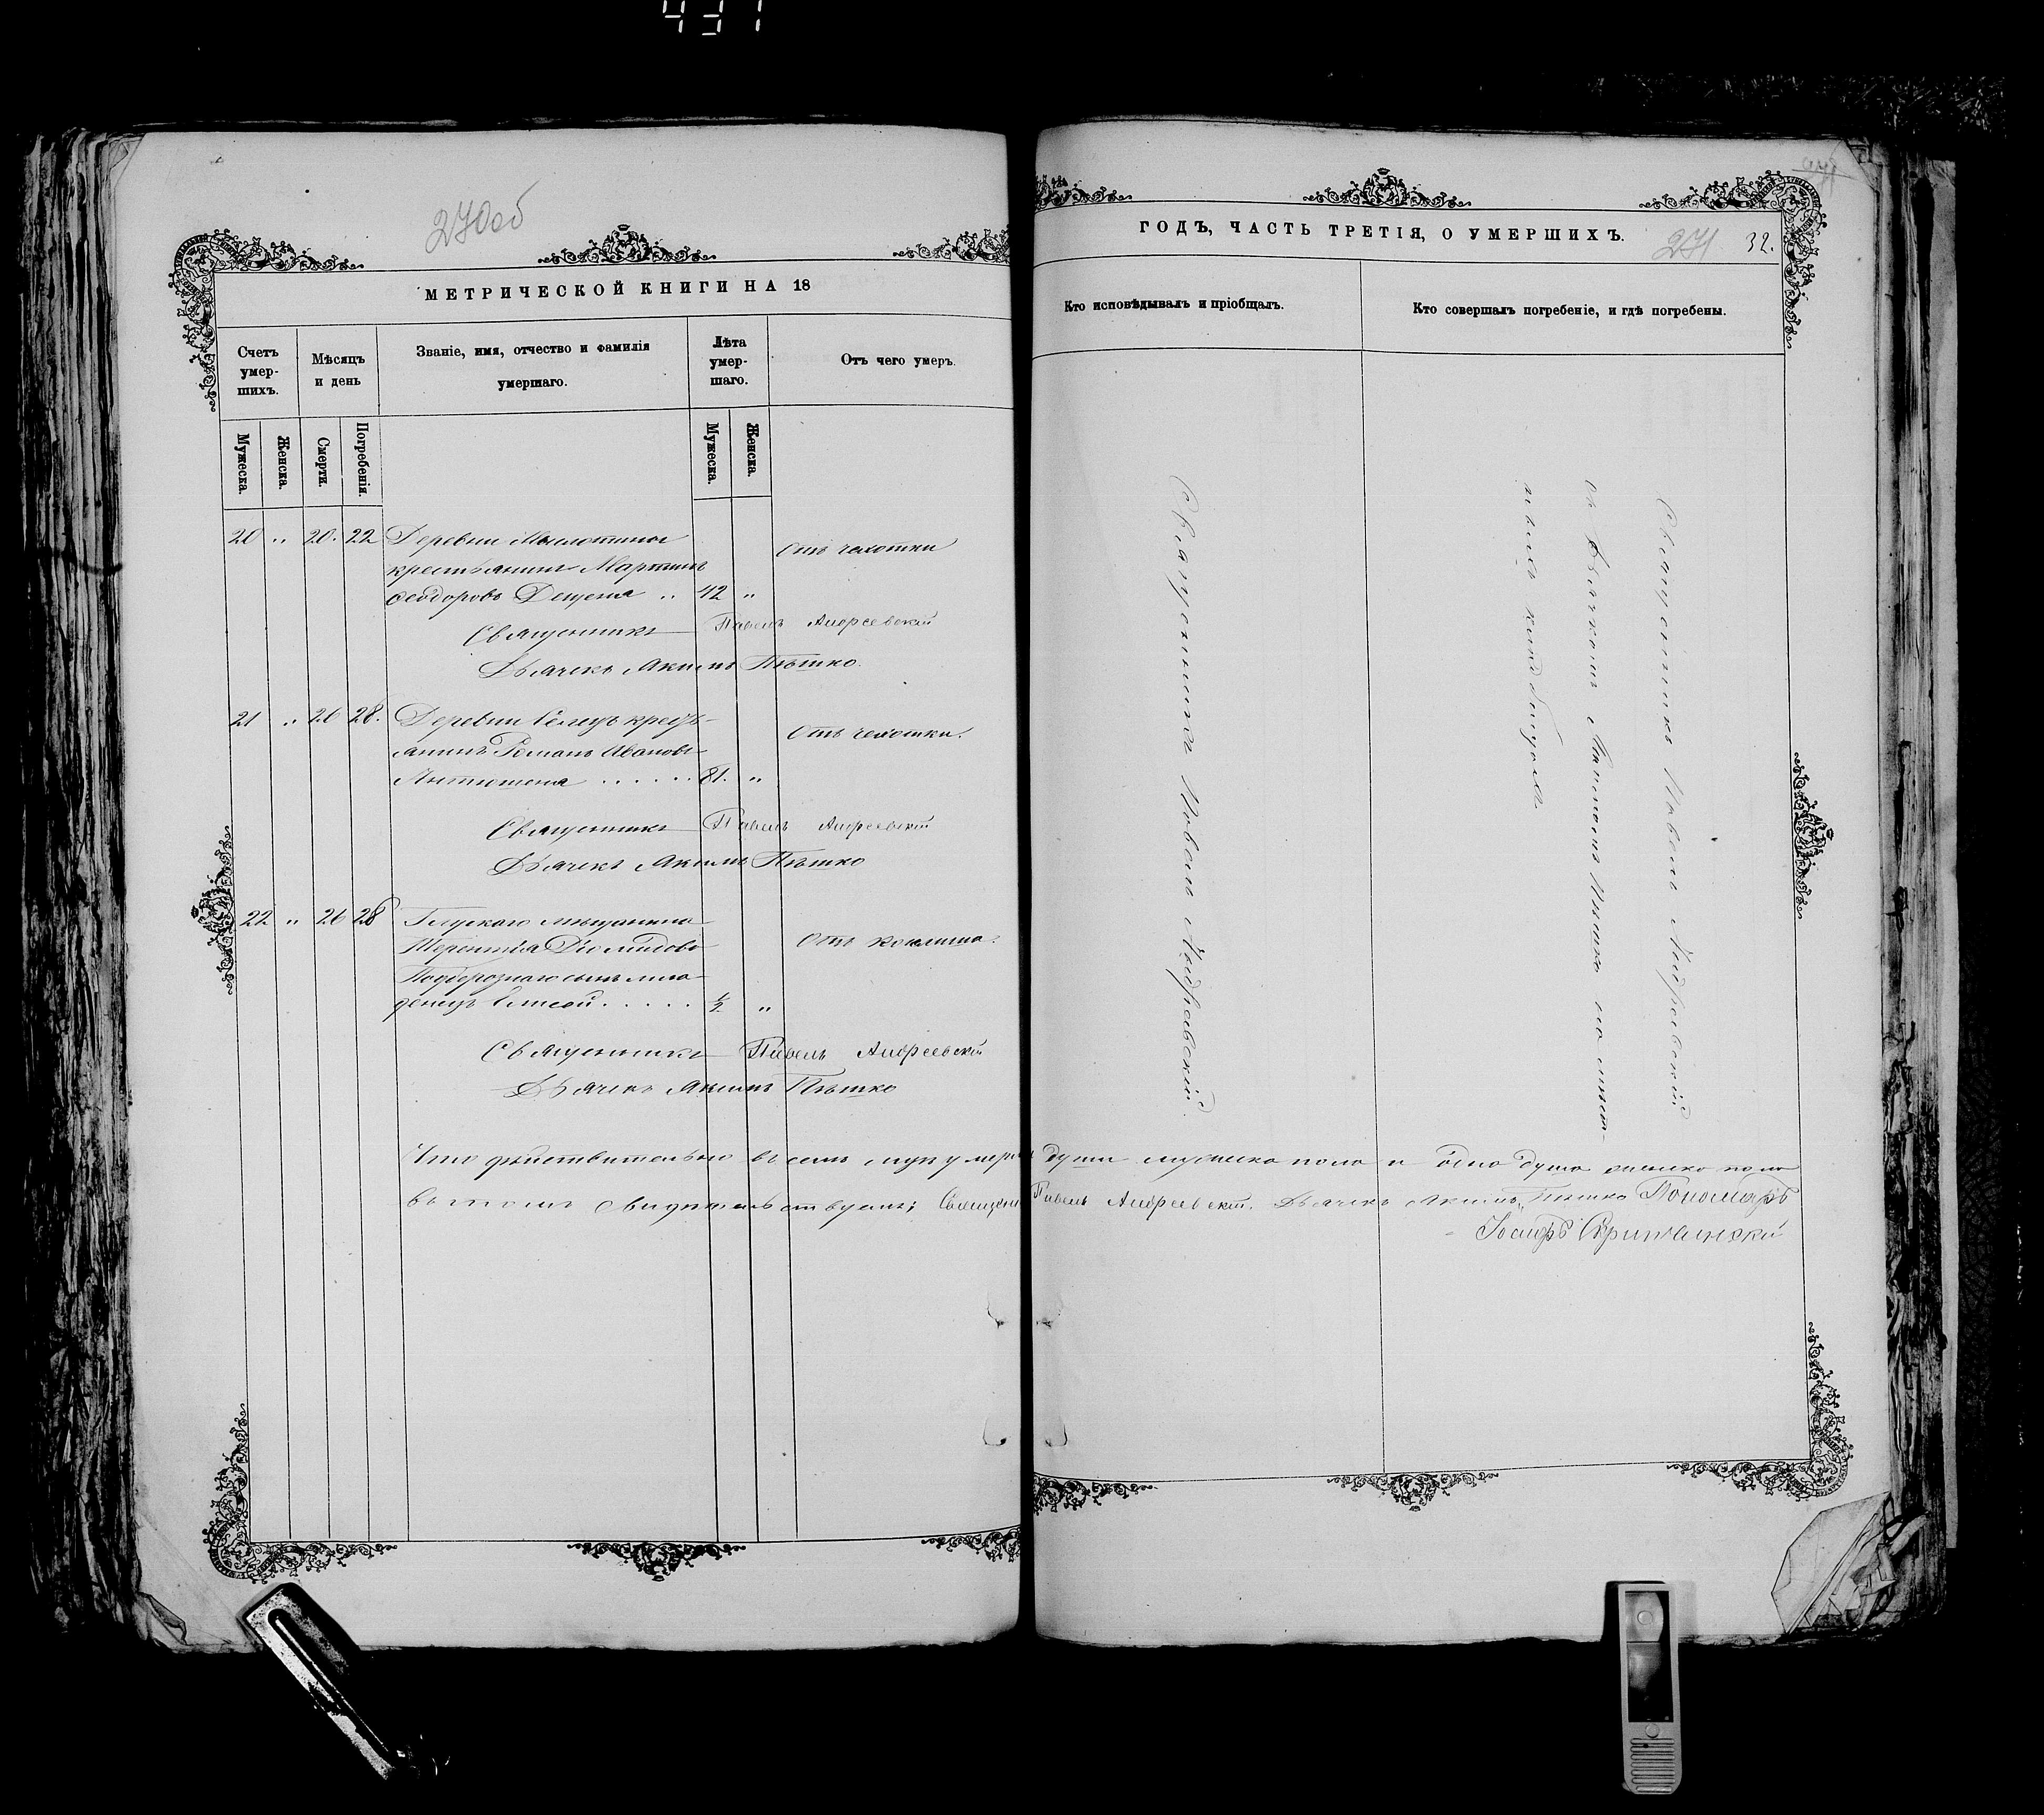 431
270об
МЕТРИЧЕСКОЙ КНИГИ НА 18
ГОДЪ, ЧАСТЬ ТРЕТІЯ, О УМЕРШИХЪ.
271 32.
Счетъ умер-шихъ.
Мѣсяцъ и день
Званіе, имя, отчество и фамилія умершаго.
Лѣта умер-шаго.
Отъ чего умеръ.
Кто исповѣдывалъ и пріобщалъ.
Кто совершалъ погребеніе, и гдѣ погребены.
Мужеска.
Женска.
Смерти.
Погребенія.
Мужеска.
Женска.
20 " 20. 22 Деревни
крестьянинъ Мартинъ
Ѳеодоровъ Дещеня .. 42 "
Отъ чахотки
Священникъ Павелъ Андреевскій
Дьячекъ Акимъ Пѣшко.
21 " 26 28. Деревни Селецъ кресть-
янинъ Романъ Ивановъ
Антюшеня . . . . . . 81. "
Отъ чахотки.
Священникъ Павелъ Андреевскій
Дьячекъ Акимъ Пѣшко
22 " 26 28 Глускаго мѣщанина
Терентія Діомидова
Подгорознаго сынъ мла-
денецъ Елисей . . . . . ½ "
Отъ коклюша.
Священникъ Павелъ Андреевскій
Дьячекъ Акимъ Пѣшко
Священникъ Павелъ Андреевскій.
Священникъ Павелъ Андреевскій
съ Дьячкомъ Акимомъ Пѣшко на мѣст-
ныхъ кладбищахъ
Что дѣйствительно въ семъ души мужеска пола и одна душа женска пола
въ томъ свидѣтельствуемъ; Священ Павелъ Андреевскій. Дьячекъ Акимъ Пѣшко Пономарь
Іосифъ